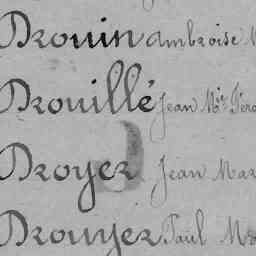 Drouin Ambroise
Drouillé Jean Mie
Droyer Jean Mar
Drouyer Paul